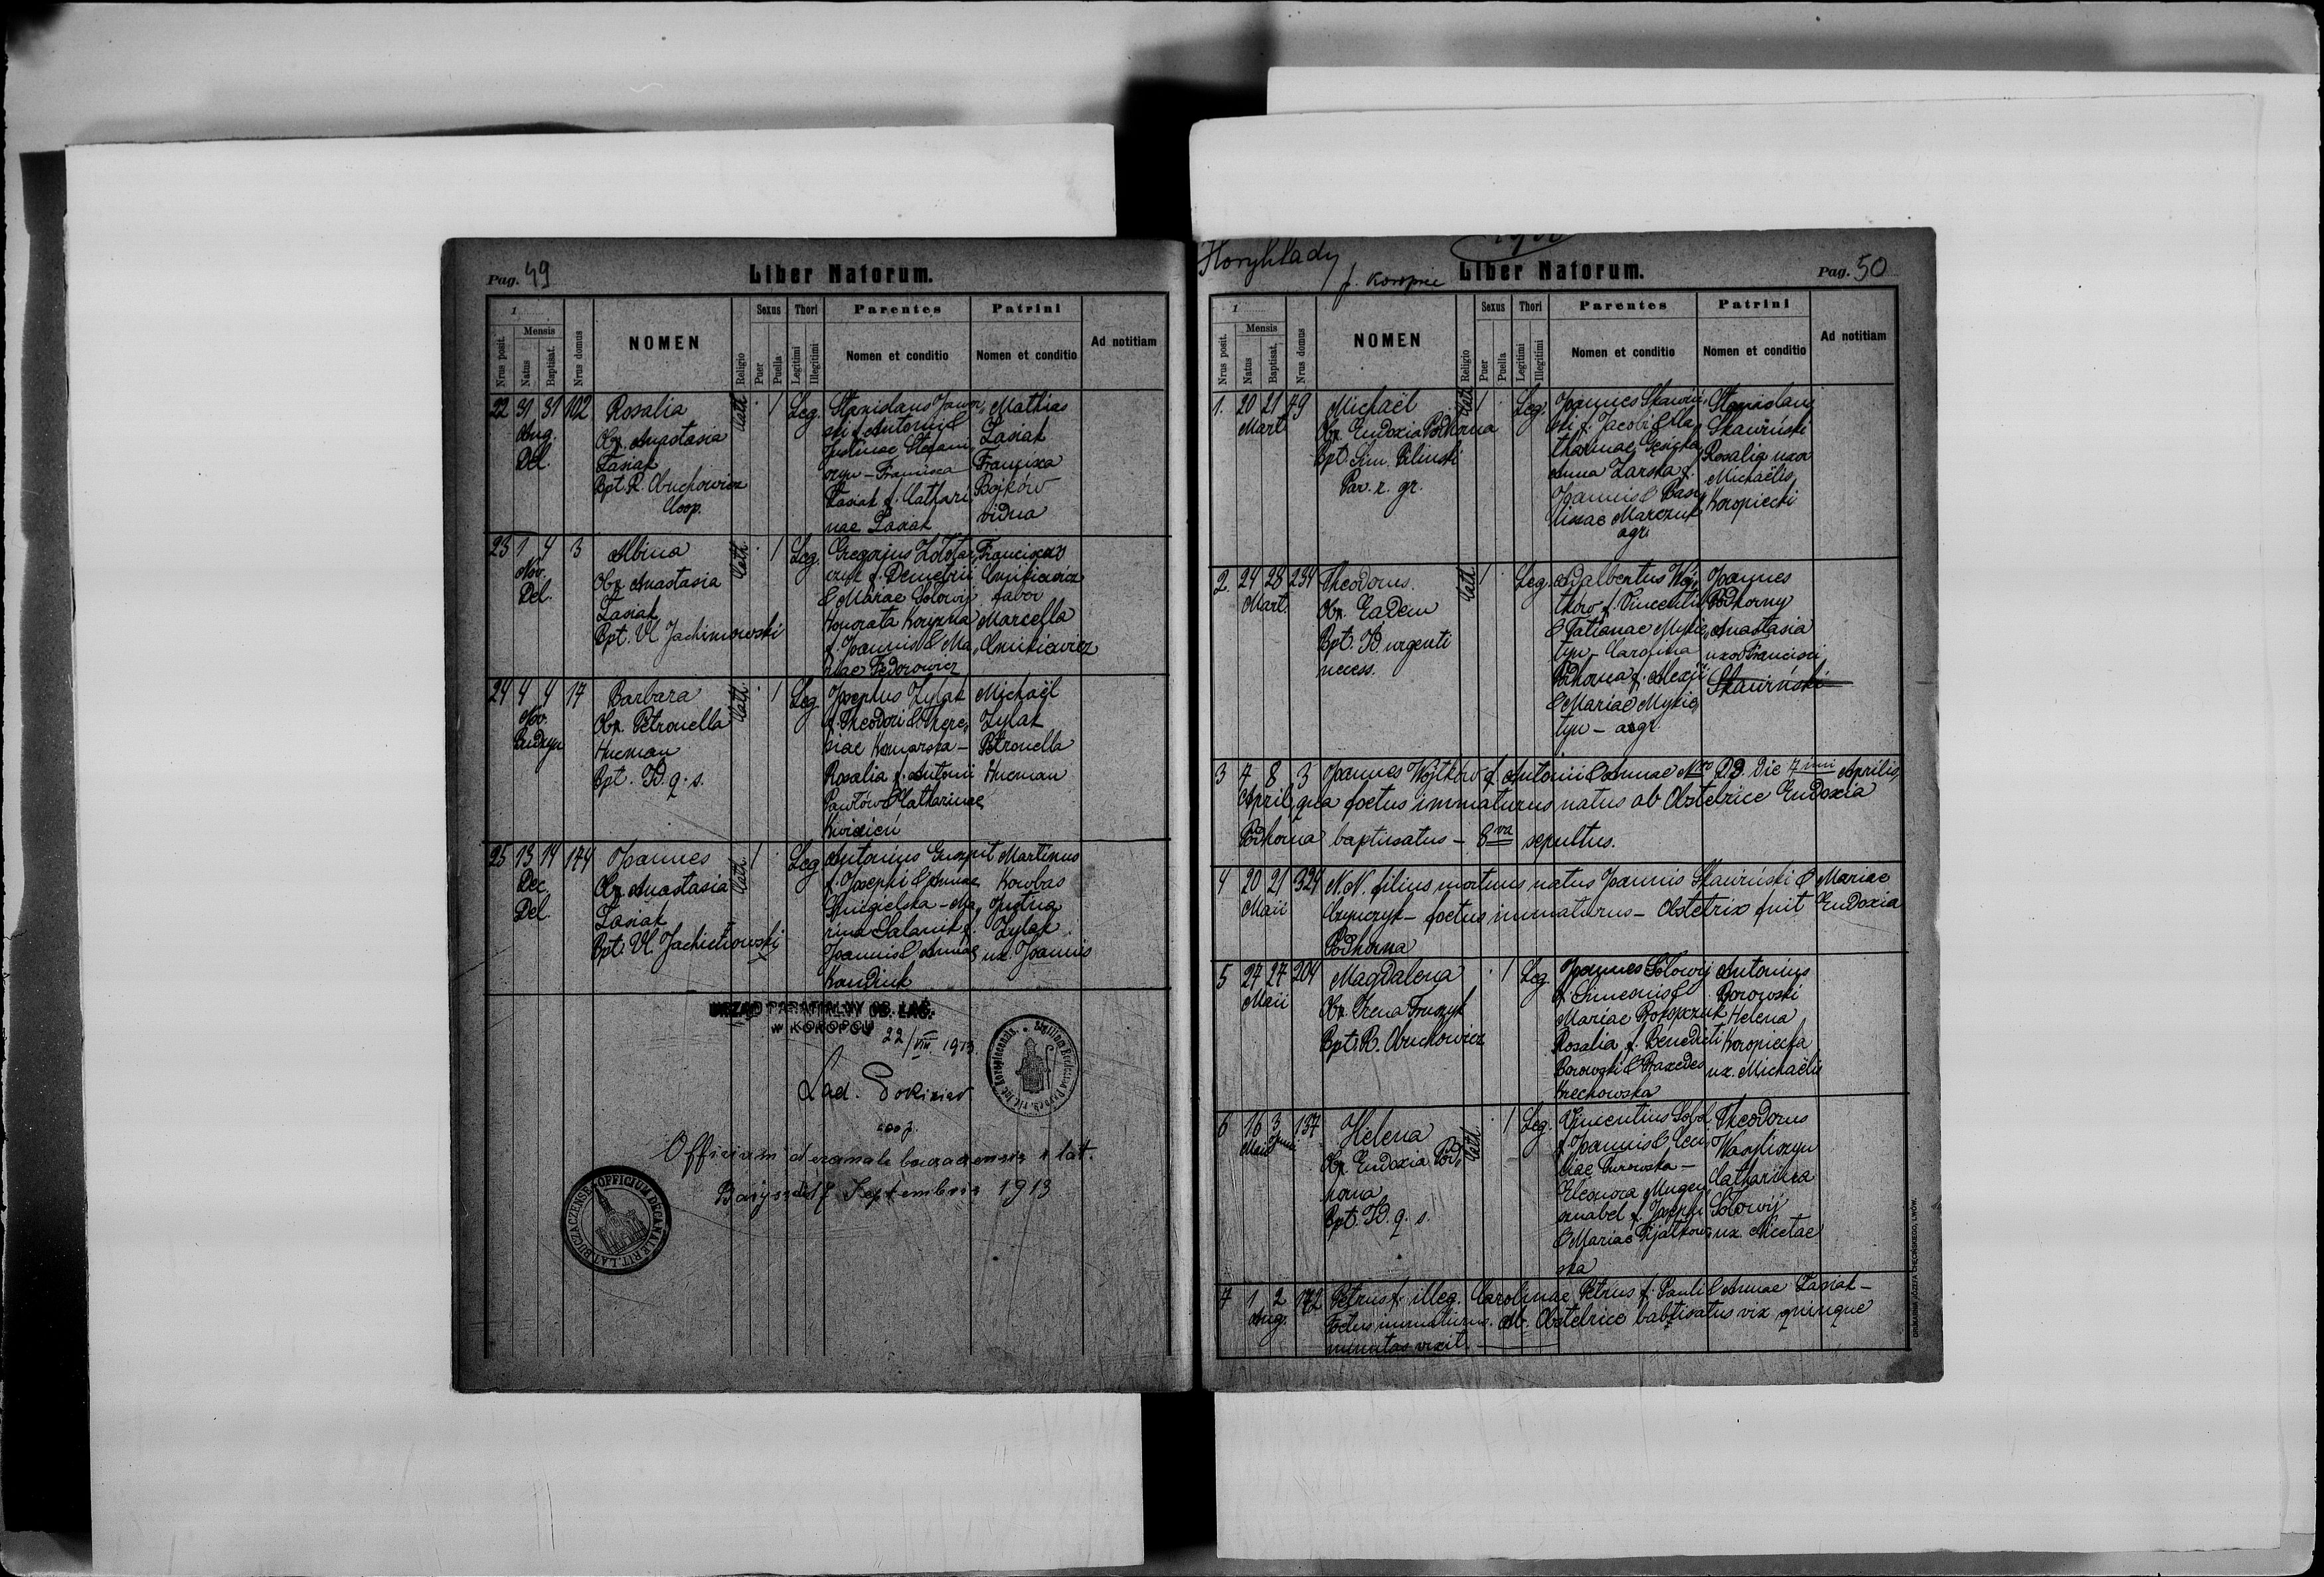 Pag. 49
Liber Natorum.
1
Nrus posit.
Mensis
Natus
Baptisat.
Nrus domus
NOMEN
Religio
Sexus
Puer
Puella
Thori
Legitimi
Illegitimi
Parentes
Nomen et conditio
Patrini
Nomen et conditio
Ad notitiam
22 31 31 102
Aug.
Del.
Rosalia
Obz. Anastasia
Łasiak
Bpt. R. Obuchowicz
Coop.
Cath.
1
Leg.
Stanislaus Jawor
ski f. Antonii &
Justinae Stefani
czyn - Francisca
Łasiak f. Cathari
nae Łasiak
Mathias
Łasiak
Francisca
Bojków
vidua
23 1 4 3
Nov.
Del.
Albina
Obz. Anastasia
Łasiak
Bpt. Vl. Jachimowski
Cath.
1
Leg.
Gregorius Zołotar
czuk f. Demetrii
& Mariae Sołowij
Honorata
f. Joannis & Ma
riae Fedorowicz
Franciscus
Ćwikiewicz
faber
Marcella
Ćwikiewicz
24 4 4 17
Nov.
Barbara
Obz. Petronella
Hucman
Bpt. Id. q. s.
Cath.
1
Leg.
Josephus Żyłak
f. Theodori & There
siae Komarska -
Rosalia f. Antonii
Pawłów & Catharinae
Michaël
Żyłak
Petronella
Hucman
25 13 14 174
Dec.
Del.
Joannes
Obz. Anastasia
Łasiak
Bpt. Vl.
Cath.
1
Leg.
Antonius
f. Josephi & Annae
Śmigielska - Ma
rina Salanik f.
Joannis & Annae
Kondiuk
Martinus
Kowbas
Justina
Żyłak
ux. Joannis
URZĄD PARAFIALNY OB. ŁAĆ.
w KOROPCU
22/VIII. 1913.
Lad.
coop.
Officium decanale buczacensis r. lat.
Septembris 1913
OFFICIUM DECANALE RIT. LAT. BUCZACZENSE
Horyhlady
f. Koropiec
Liber Natorum.
Pag. 50
1
Nrus posit.
Mensis
Natus
Baptisat.
Nrus domus
NOMEN
Religio
Sexus
Puer
Puella
Thori
Legitimi
Illegitimi
Parentes
Nomen et conditio
Patrini
Nomen et conditio
Ad notitiam
1. 20 21 49
Mart.
Michaël
Obz. Eudoxia Podhorna
Bpt. Sim. Bilinski
Par. r. gr.
Cath.
1
Leg.
Joannes Skawiń
ski f. Jacobi & Ca
tharinae
Anna Zarska f.
Joannis & Basi
lissae Marczuk
agr.
Stanislaus
Skawiński
Rosalia uxor
Michaëlis
Koropiecki
2. 24 28 234
Mart.
Theodorus
Obz. Eadem
Bpt. Id. urgenti
necess.
Cath.
1
Leg.
Adalbertus Woj
tków f. Vincentii
& Tatianae Mykie
tyn - Carolina
Podhorna f. Alexii
& Mariae Mykie
tyn - agr.
Joannes
Podhorny
Anastasia
uxor Francisci
Skawiński
3 7 8 3 Joannes Wojtków f. Antonii & Annae Die 7 Aprilis
April. qua foetus immaturus natus ab Obstetrice Eudoxia
Podhorna baptisatus - 8va sepultus.
4 20 21 324 N. N. filius mortuus natus Joannis Skawiński & Mariae
Maii foetus immaturus - Obstetrix fuit Eudoxia
Podhorna
5 27 27 204
Maii
Magdalena
Obz. Irena
Bpt. R. Obuchowicz
1
Leg.
Joannes Sołowij
f. Simeonis &
Mariae Prokopczuk
Rosalia f. Benedicti
Borowski & Praxedes
Krechowska
Antonius
Borowski
Helena
Koropiecka
ux. Michaëlis
6 16 3 137
Maii Junii
Helena
Obz. Eudoxia Pod
horna
Bpt. Id. q. s.
Cath.
1
Leg.
Vincentius
f. Joannis &
Eleonora
f. Josephi
& Mariae Fijałkow
ska
Theodorus
Catharina
Sołowij
ux. Nicetae
7 1 2 172 Petrus f. illeg. Carolinae Petrus f. Pauli & Annae Łasiak -
Aug. Foetus immaturus. Ab Obstetrice babtisatus vix quinque
minutas vixit.
DRUKARNIA JÓZEFA CHĘCIŃSKIEGO, LWÓW.